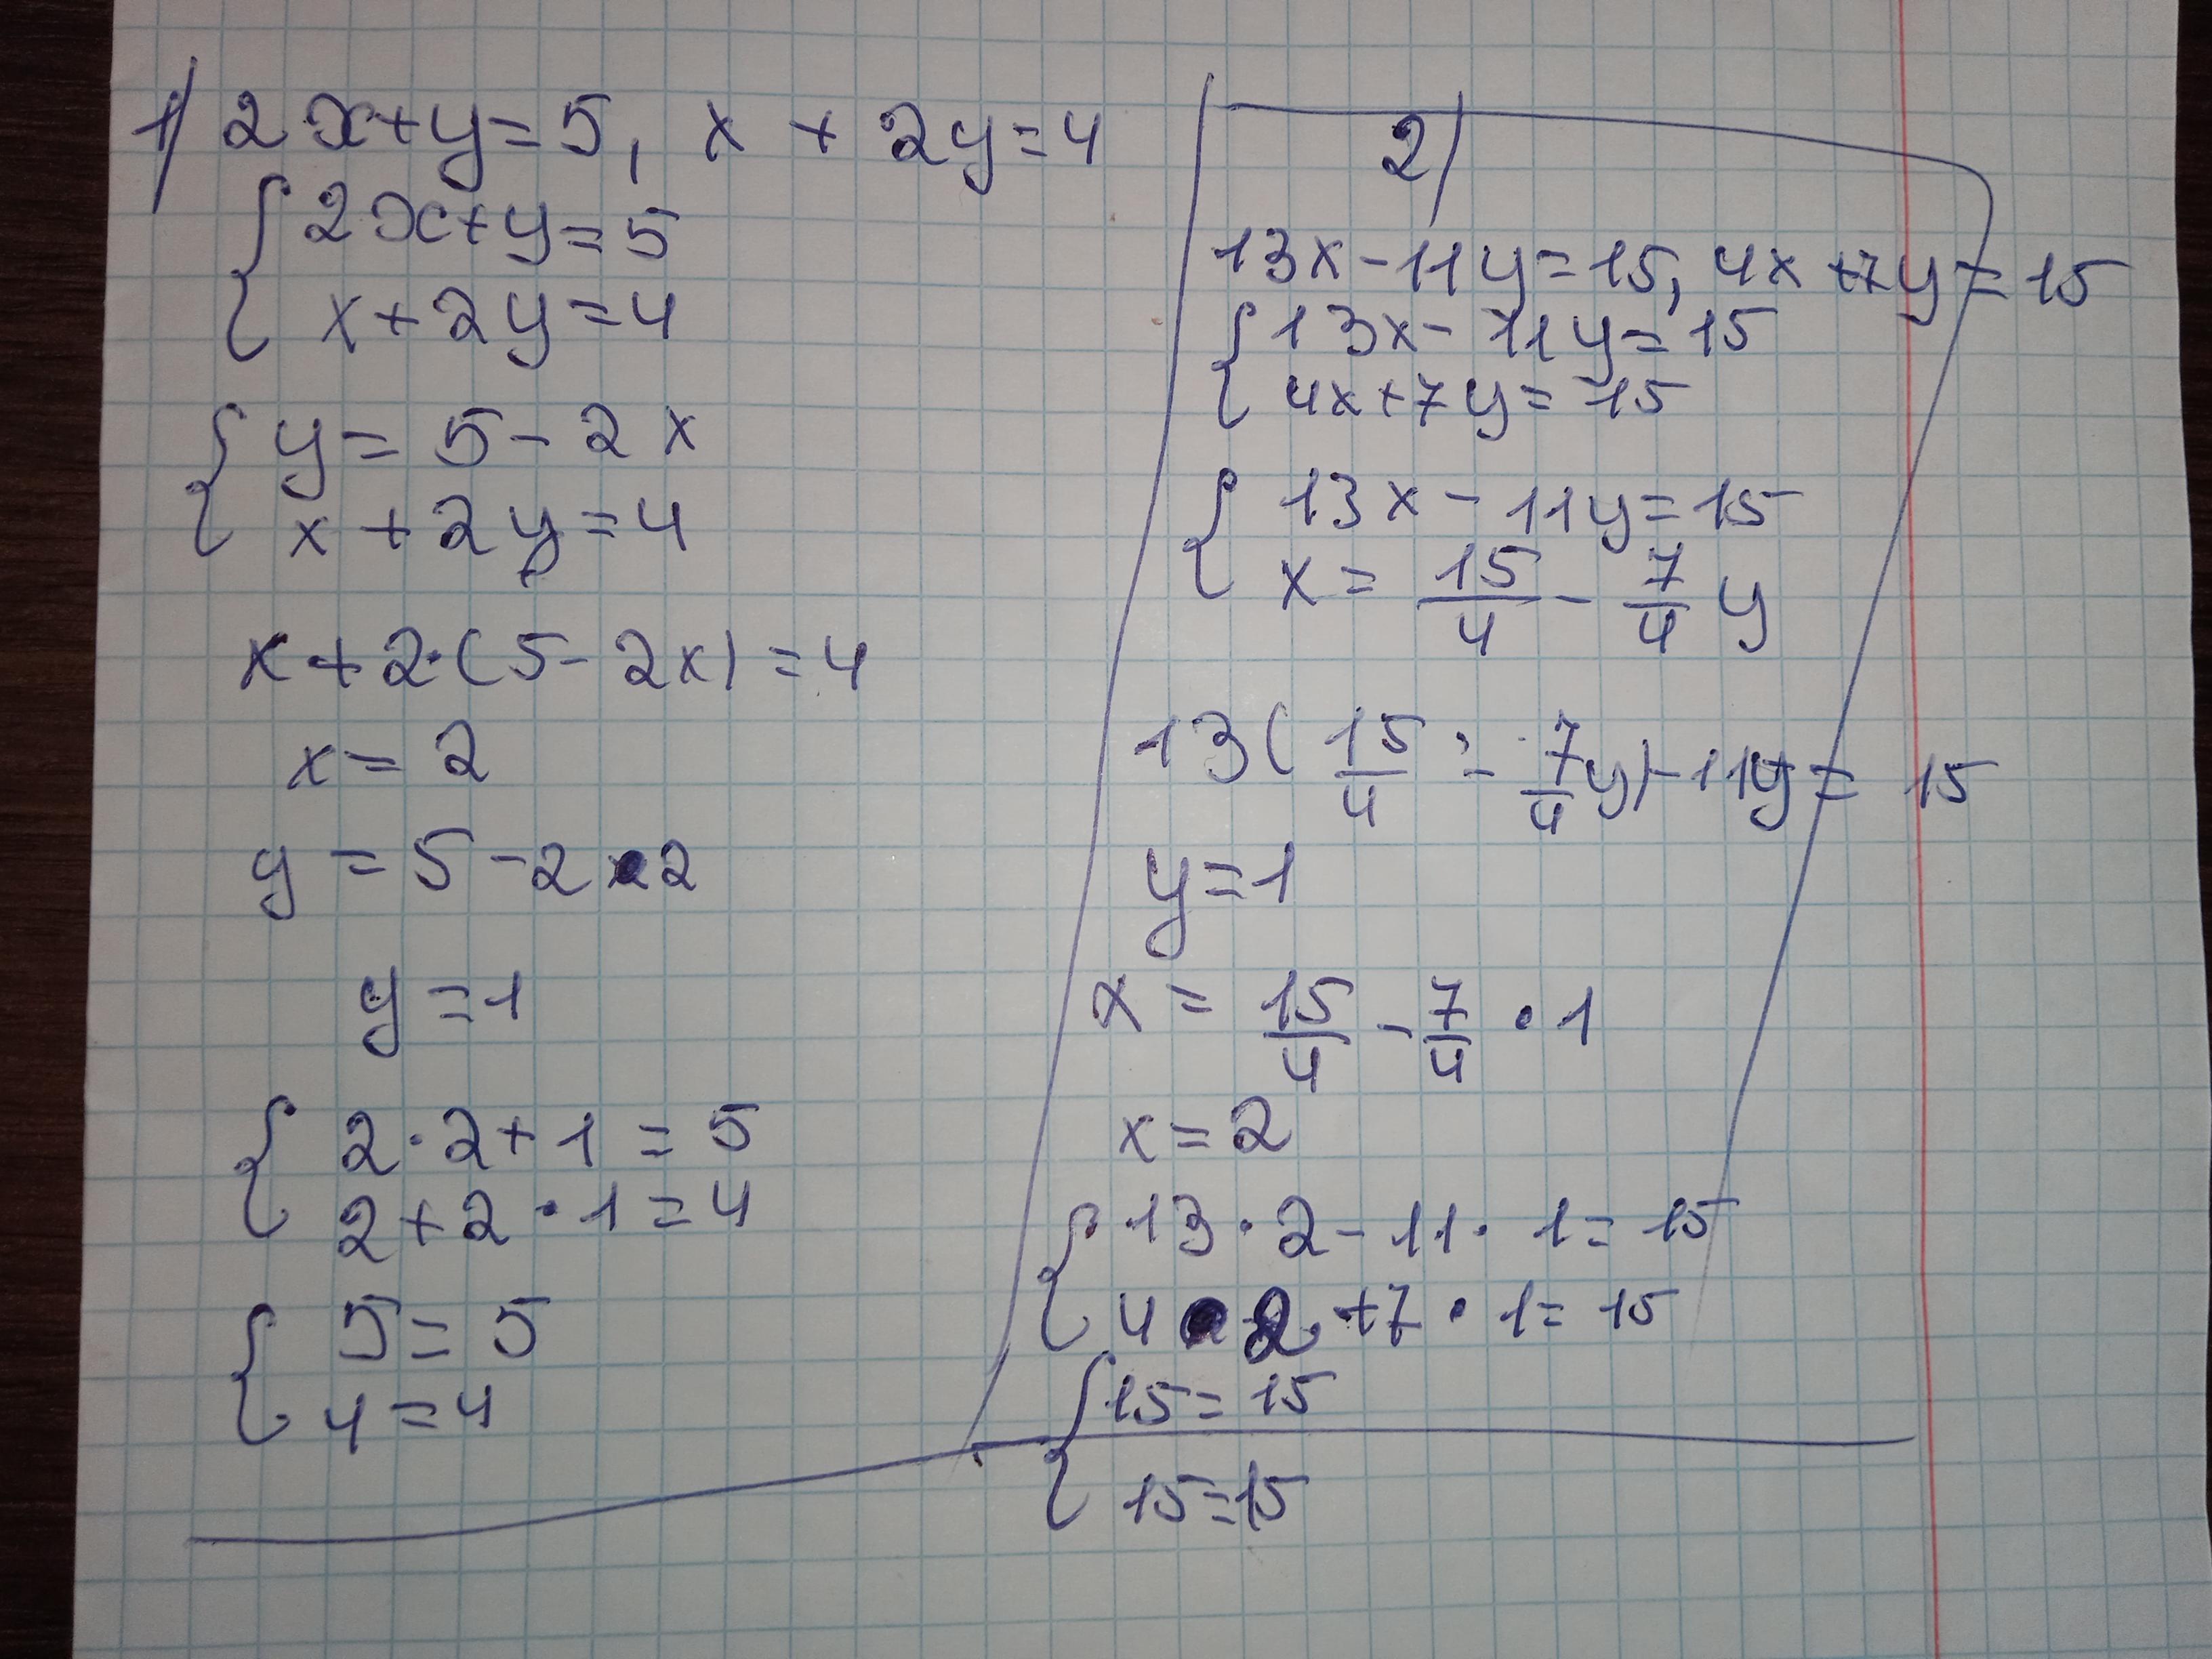 1) 2x+y=5, x + 2y=4
{ 2x+y=5
x+2y=4
{ y= 5-2x
x+2y=4
x+2·(5-2x)=4
x=2
y=5-2·2
y=1
{ 2·2+1=5
2+2·1=4
{ 5=5
4=4
2)
13x-11y=15, 4x+7y=15
{ 13x-11y=15
4x+7y=15
{ 13x-11y=15
x= 15/4 - 7/4 y
13( 15/4 - 7/4 y)-11y= 15
y=1
x= 15/4 - 7/4 · 1
x=2
{ 13·2-11·1=15
4·2+7·1=15
{ 15=15
15=15